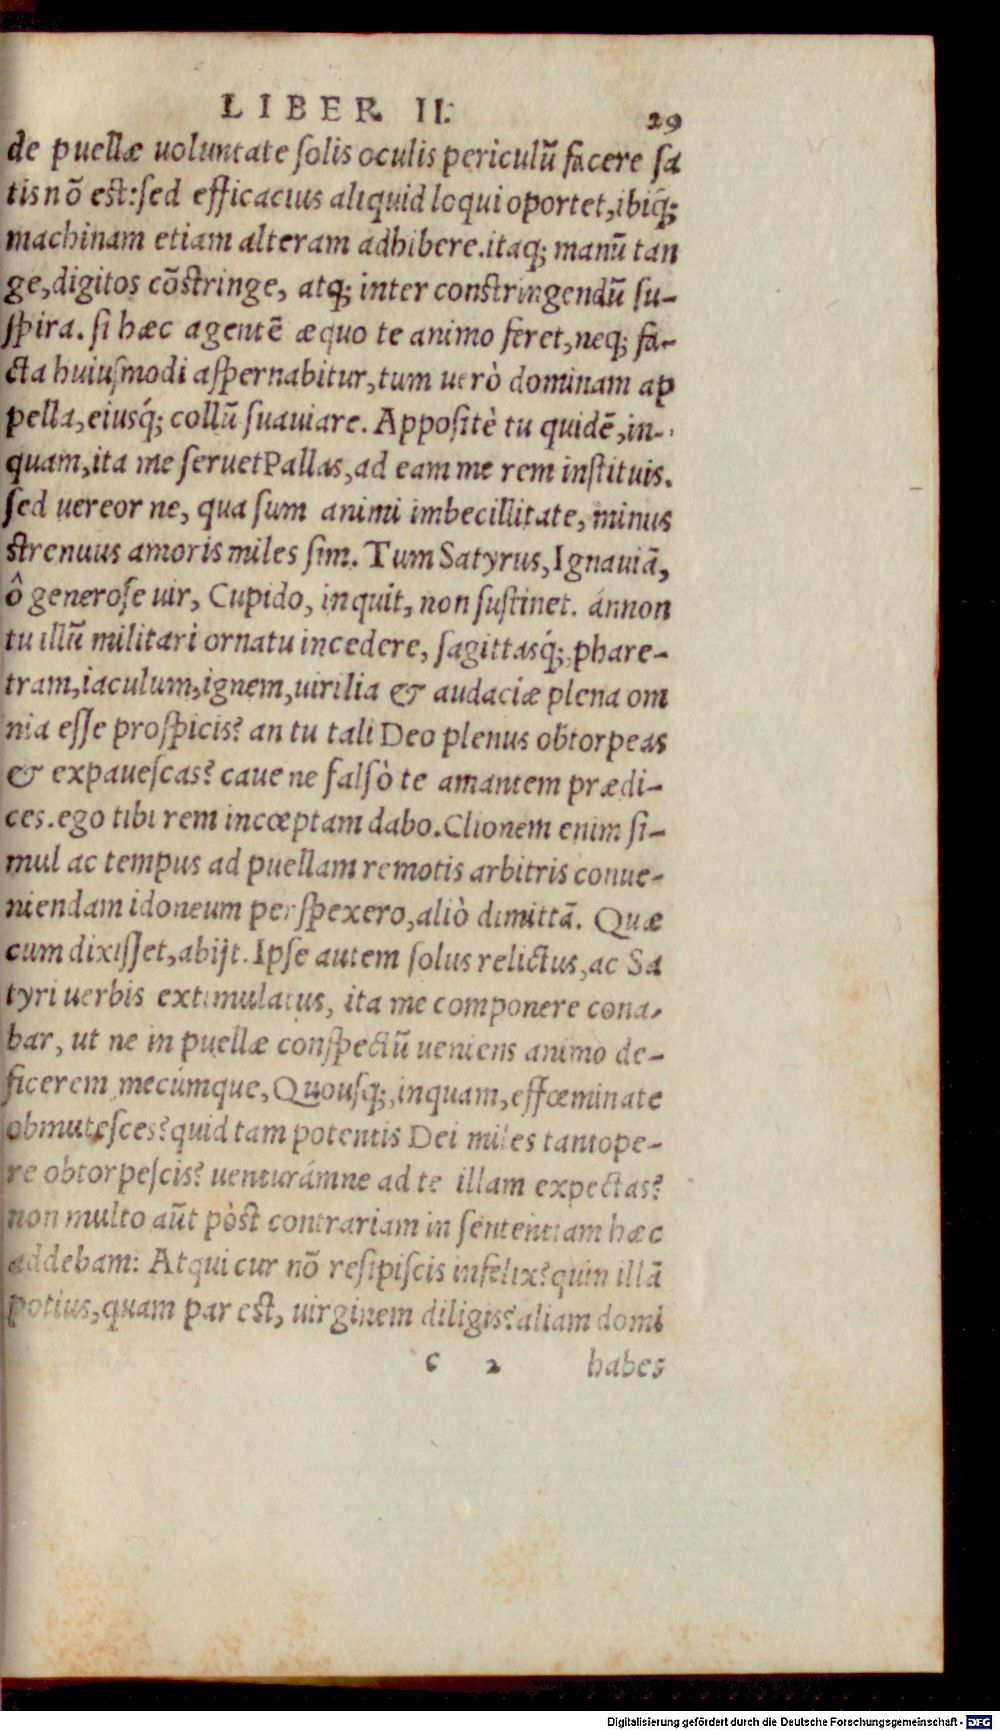 LIBER II. 29
de puellæ uoluntate ſolis oculis periculũ facere ſa
tis nõ eſt: ſed efficacius aliquid loqui oportet, ibiq́;
machinam etiam alteram adhibere. itaq; manũ tan
ge, digitos cõſtringe, atq; inter conſtringendũ ſu-
ſpira. ſi hæc agentẽ æquo te animo feret, neq; fa-
cta huiuſmodi aſpernabitur, tum uerò dominam ap
pella, eiusq́; collũ ſuauiare. Appoſitè tu quidẽ, in-
quam, ita me ſeruet Pallas, ad eam me rem inſtituis.
ſed uereor ne, qua ſum animi imbecillitate, minus
ſtrenuus amoris miles ſim. Tum Satyrus, Ignauiã,
ô generoſe uir, Cupido, inquit, non ſuſtinet. ánnon
tu illũ militari ornatu incedere, ſagittasq́;, phare-
tram, iaculum, ignem, uirilia & audaciæ plena om
nia eſſe proſpicis? an tu tali Deo plenus obtorpeas
& expaueſcas? caue ne falſò te amantem prædi-
ces. ego tibi rem incœptam dabo. Clionem enim ſi-
mul ac tempus ad puellam remotis arbitris conue-
niendam idoneum perſpexero, aliò dimittã. Quæ
cum dixiſſet, abijt. Ipſe autem ſolus relictus, ac Sa
tyri uerbis extimulatus, ita me componere cona-
bar, ut ne in puellæ conſpectũ ueniens animo de-
ficerem mecúmque, Quouſq;, inquam, effœminate
obmuteſces? quid tam potentis Dei miles tantope-
re obtorpeſcis? uenturámne ad te illam expectas?
non multo aũt pòſt contrariam in ſententiam hæc
addebam: Atqui cur nõ reſipiſcis infelix? quin illã
potius, quam par eſt, uirginem diligis? aliam domi
c 2 habes
Digitalisierung gefördert durch die Deutsche Forschungsgemeinschaft - DFG